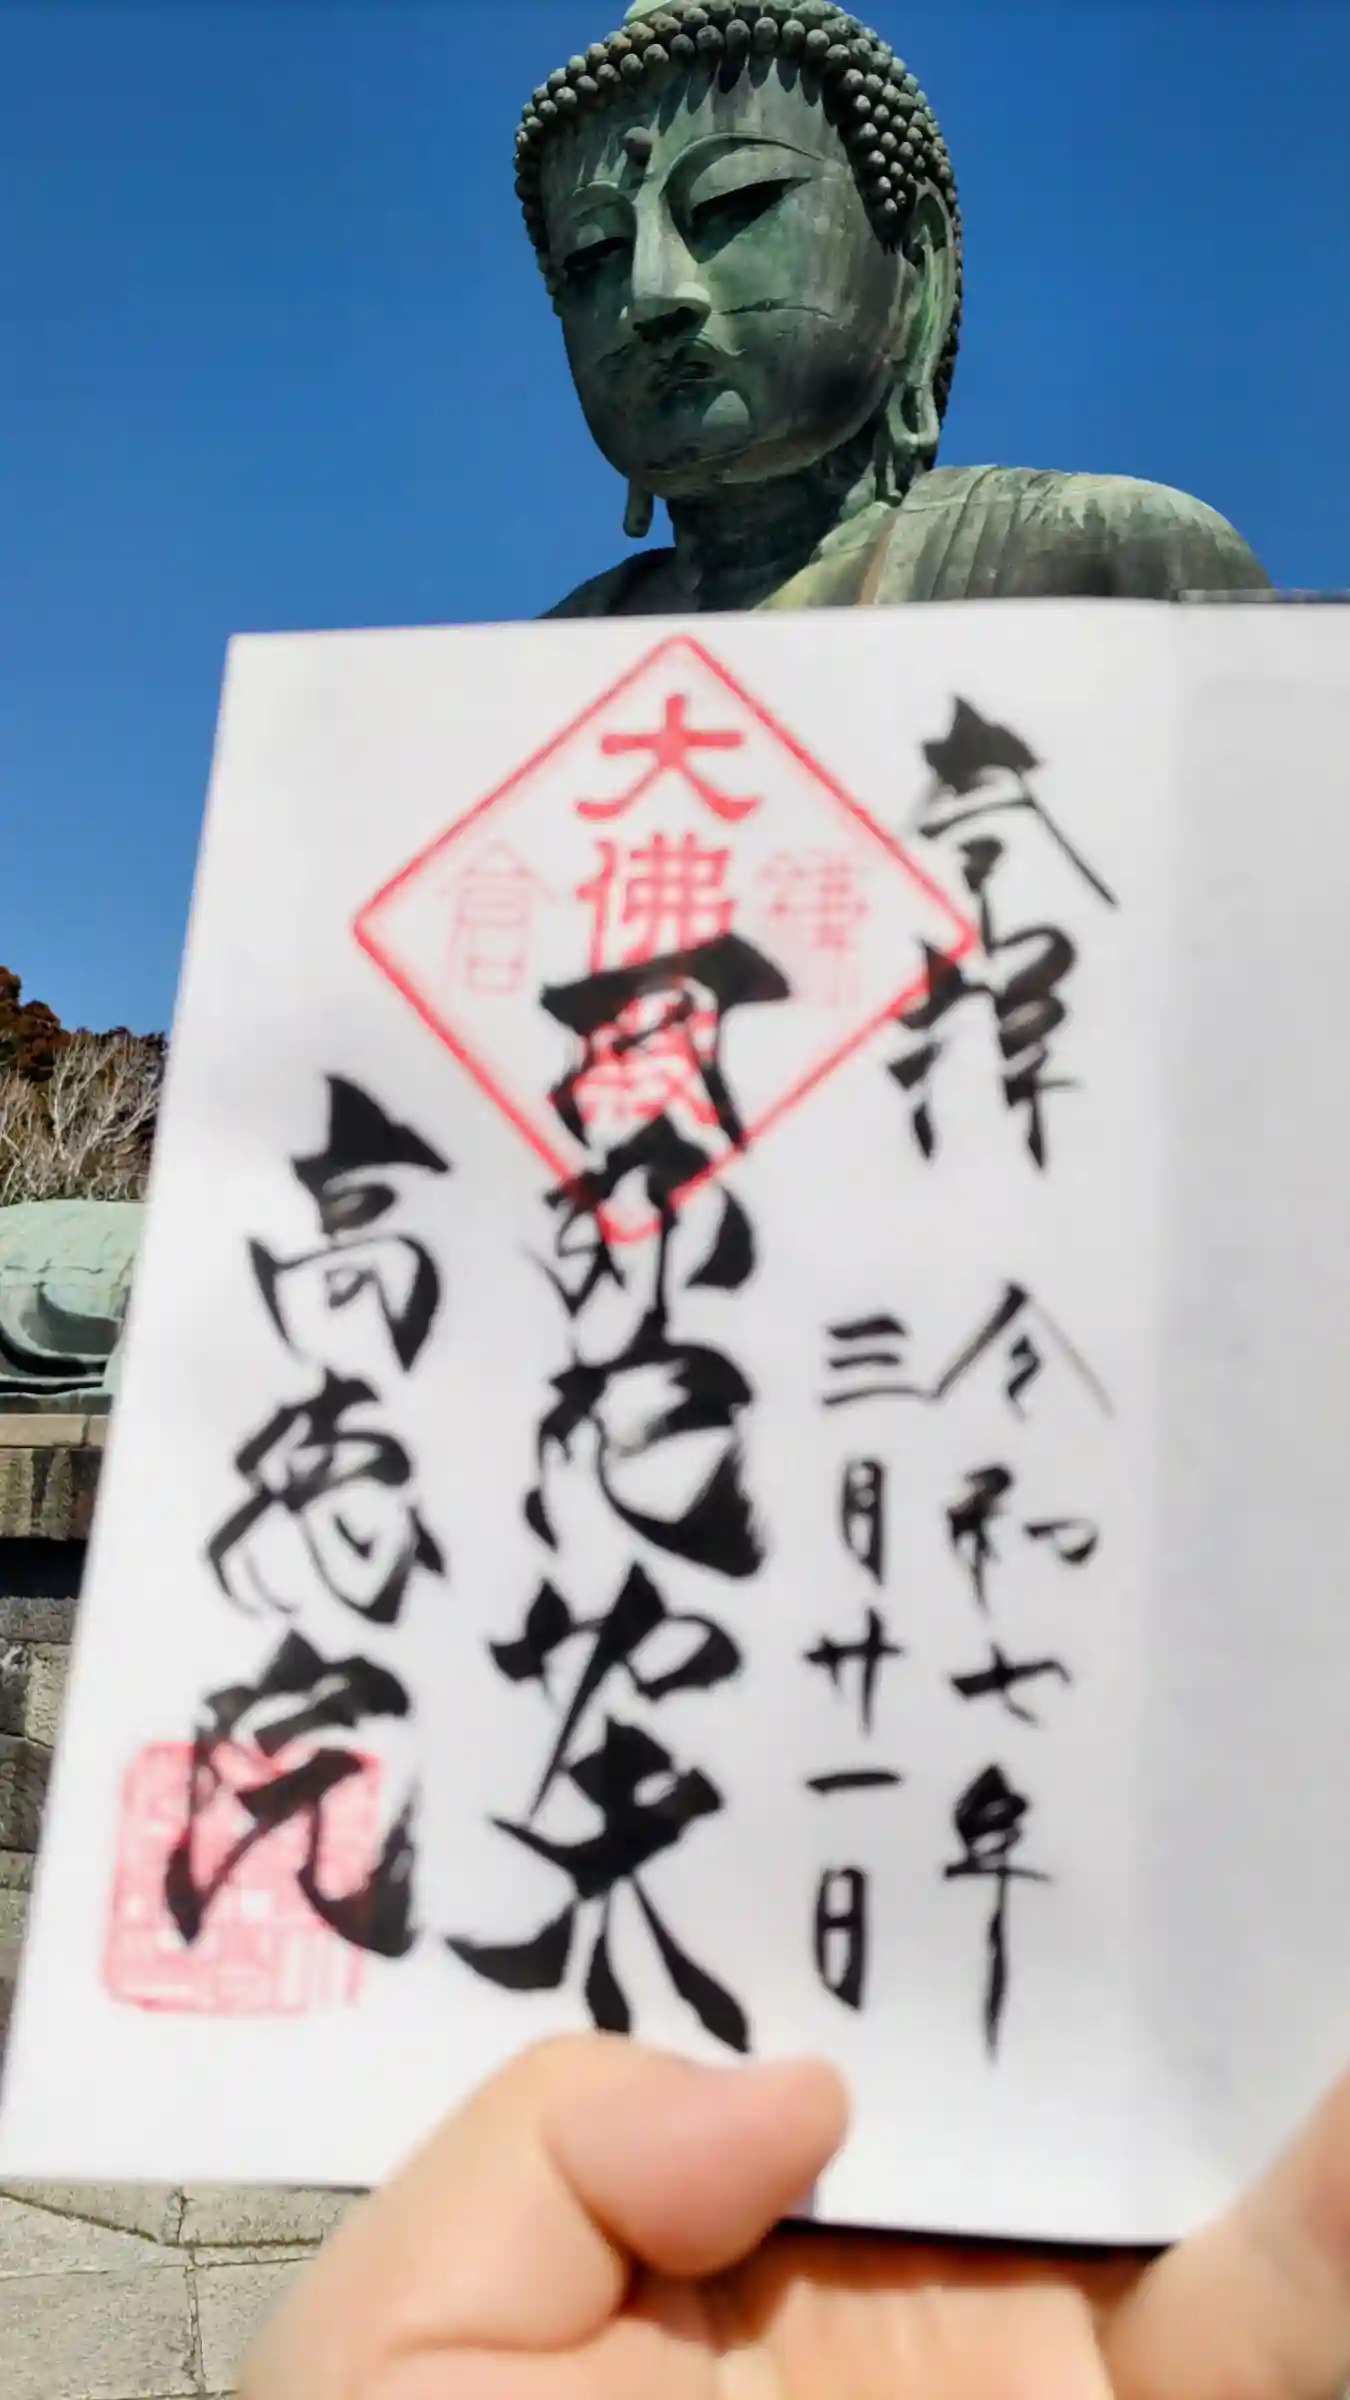 奉拝
令和七年
三月廿一日
大佛殿
鎌倉
阿弥陀如来
高徳院